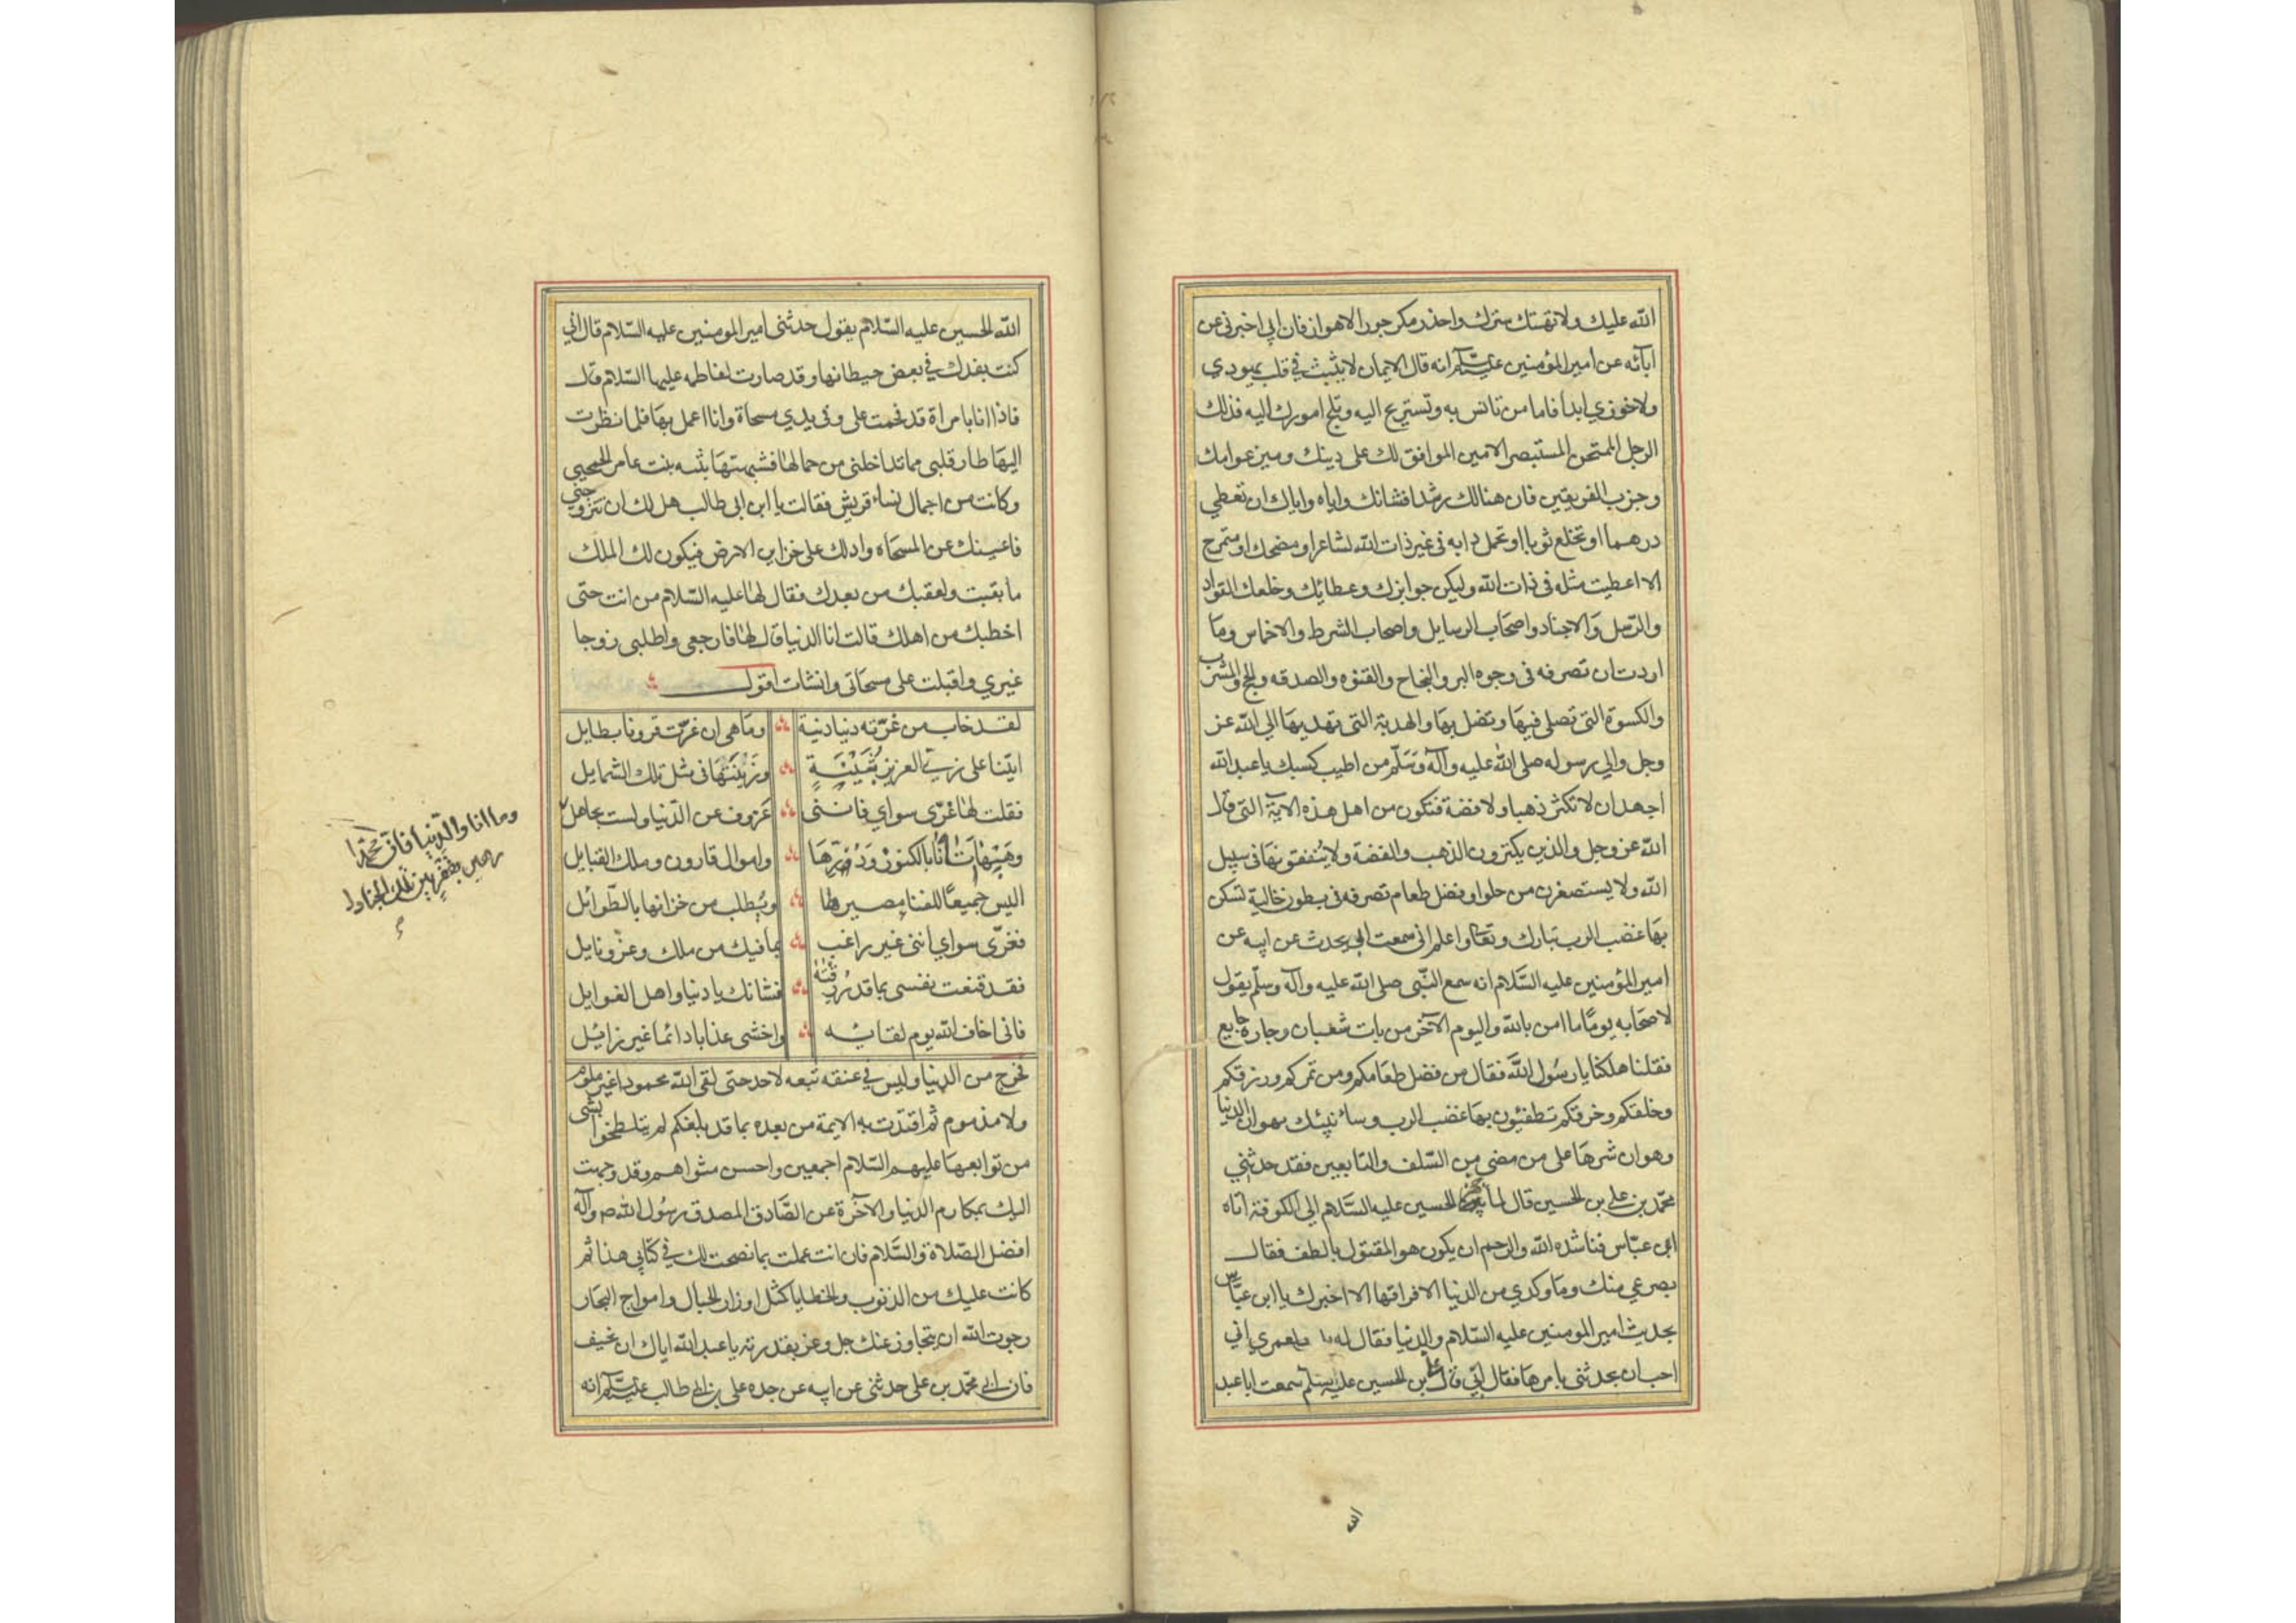 الله عليك ولا تهتك سترك واحذر مكر جور الاهواز فان ابي اخبرني عن
آبآئه عن امير المؤمنين عليه السلام انه قال الايمان لا يثبت في قلب يهودي
ولا خوزي ابدا فاما من تانس به وتستريح اليه وتلج امورك اليه فذلك
الرجل الممتحن المستبصر الامين الموافق لك على دينك وميز عوامك
وجرب الفريقين فان هنالك رشدا فشانك واياه واياك ان تعطي
درهما او تخلع ثوبا او تحمل دابه في غير ذات الله لشاعر او مضحك او متمرح
الا اعطيت مثله في ذات الله وليكن جوايزك وعطائك وخلعك القواد
والرسل والاجناد واصحاب الرسايل واصحاب الشرط والاخماس وما
اردت ان تصرفه في وجوه البر والنجاح والفتوه والصدقه والحج والمشرب
والكسوة التي تصلي فيها وتصل بها والهدية التي تهديها الى الله عز
وجل والى رسوله صلى الله عليه وآله وسلم من اطيب كسبك يا عبد الله
اجهد ان لا تكنز ذهبا ولا فضة فتكون من اهل هذه الاية التي قال
الله عز وجل والذين يكنزون الذهب والفضة ولا ينفقونها في سبيل
الله ولا يستصغرن من حلو او فضل طعام تصرفه في بطون خالية تسكن
بها غضب الرب تبارك وتعالى واعلم اني سمعت ابي يحدث عن ابيه عن
امير المؤمنين عليه السلام انه سمع النبي صلى الله عليه وآله وسلم يقول
لاصحابه يوما ما امن بالله واليوم الآخر من بات شبعان وجاره جايع
فقلنا هلكنا يا رسول الله فقال من فضل طعامكم ومن تمركم ورزقكم
وخلقكم وخرقكم تطفئون بها غضب الرب وسانبئك بهوان الدنيا
وهوان شرفها على من مضى من السلف والتابعين فقد حدثني
محمد بن علي بن الحسين قال لما تجهز الحسين عليه السلام الى الكوفة اتاه
ابن عباس فناشده الله والرحم ان يكون هو المقتول بالطف فقال
بصرعي منك وما وكدي من الدنيا الا فراقها الا اخبرك يا ابن عباس
بحديث امير المومنين عليه السلام والدنيا فقال له بلى لعمري اني
احب ان يحدثني بامرها فقال ابي قال علي بن الحسين عليه السلم سمعت ابا عبد
الله
الله الحسين عليه السلام يقول حدثني امير المومنين عليه السلام قال اني
كنت بفدك في بعض حيطانها وقد صارت لفاطمه عليها السلام قال
فاذا انا بامراة قد قحمت على وفي يدي مسحاة وانا اعمل بها فلما نظرت
اليها طار قلبي مما تداخلني من جمالها فشبهتها بثنيه بنت عامر الجمحي
وكانت من اجمال نساء قريش فقالت يا ابن ابي طالب هل لك ان تتزوجني
فاغنيك عن المسحاه وادلك على خزاين الارض فيكون لك الملك
ما بقيت ولعقبك من بعدك فقال لها عليه السلام من انت حتى
اخطبك من اهلك قالت انا الدنيا قال لها فارجعي واطلبي زوجا
غيري واقبلت على مسحاتي وانشات اقول
لقد خاب من غرته دنيا دنية وما هي ان غرت قرونا بطايل
اتتنا على زي العزيز بثينة وزينتها في مثل تلك الشمايل
فقلت لها غري سواي فانني عزوف عن الدنيا ولست بجاهل
وما انا والدنيا فان محمدا
رهين بقفر بين تلك الجنادل
وهيهات انا بالكنوز ودرها واموال قارون وملك القبايل
اليس جميعا للفناء مصيرها ويطلب من خزانها بالطوائل
فغري سواي انني غير راغب بما فيك من ملك وعز ونايل
فقد قنعت نفسي بما قد رزقته فشانك يا دنيا واهل الغوايل
فاني اخاف الله يوم لقائه واخشى عذابا دائما غير زائل
فخرج من الدنيا وليس في عنقه تبعه لاحد حتى لقي الله محمودا غير ملوم
ولا مذموم ثم اقتدت به الايمة من بعده بما قد بلغكم لم يتلطخوا بشي
من توابعها عليهم السلام اجمعين واحسن مثواهم وقد وجهت
اليك بمكارم الدنيا والآخرة عن الصادق المصدق رسول الله ص وآله
افضل الصلاة والسلام فان انت عملت بما نصحت لك في كتابي هذا ثم
كانت عليك من الذنوب والخطايا كمثل اوزان الجبال وامواج البحار
رجوت الله ان يتجاوز عنك جل وعز بقدرته يا عبد الله اياك ان تخيف
فان ابي محمد بن علي حدثني عن ابيه عن جده علي بن ابي طالب عليه السلام انه